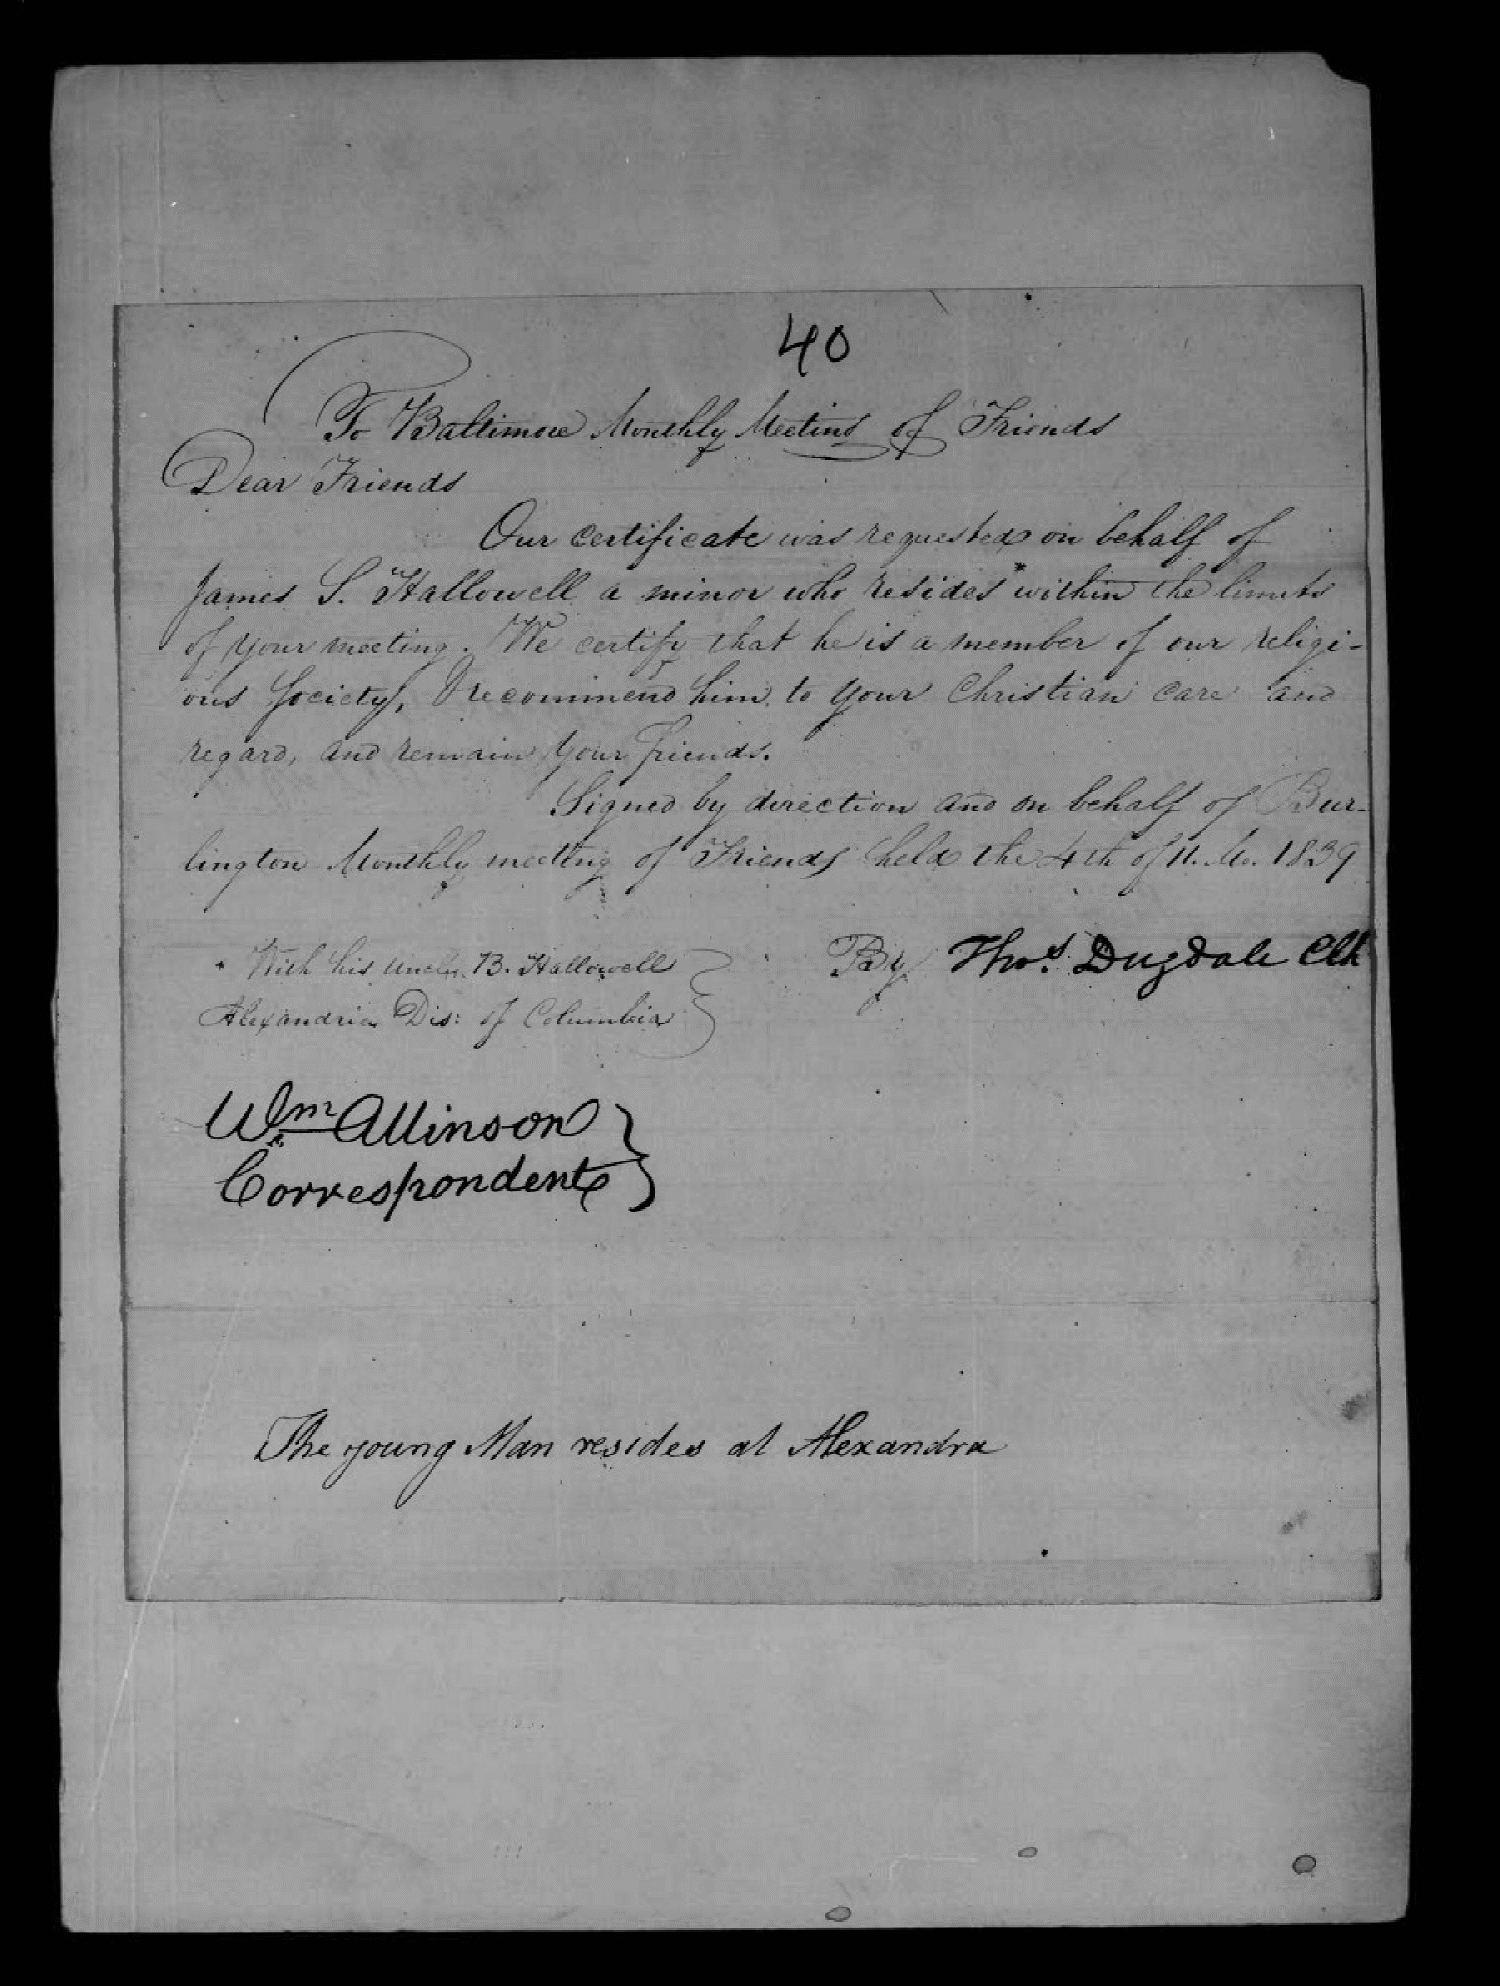 40
To Baltimore Monthly Meeting of Friends
Dear Friends
Our certificate was requested on behalf of
James S. Hallowell a minor who resides* within the limits
of your meeting. We certify that he is a member of our religi-
ous Society, & recommend him to your Christian care and
regard, and remain your friends.
Signed by direction and on behalf of Bur-
lington Monthly meeting of Friends held the 4th of 11. Mo. 1839
By Thos. Dugdale Clk
* With his uncle, B. Hallowell
Alexandria Dis: of Columbia
Wm Allinson
Correspondent
The young Man resides at Alexandra